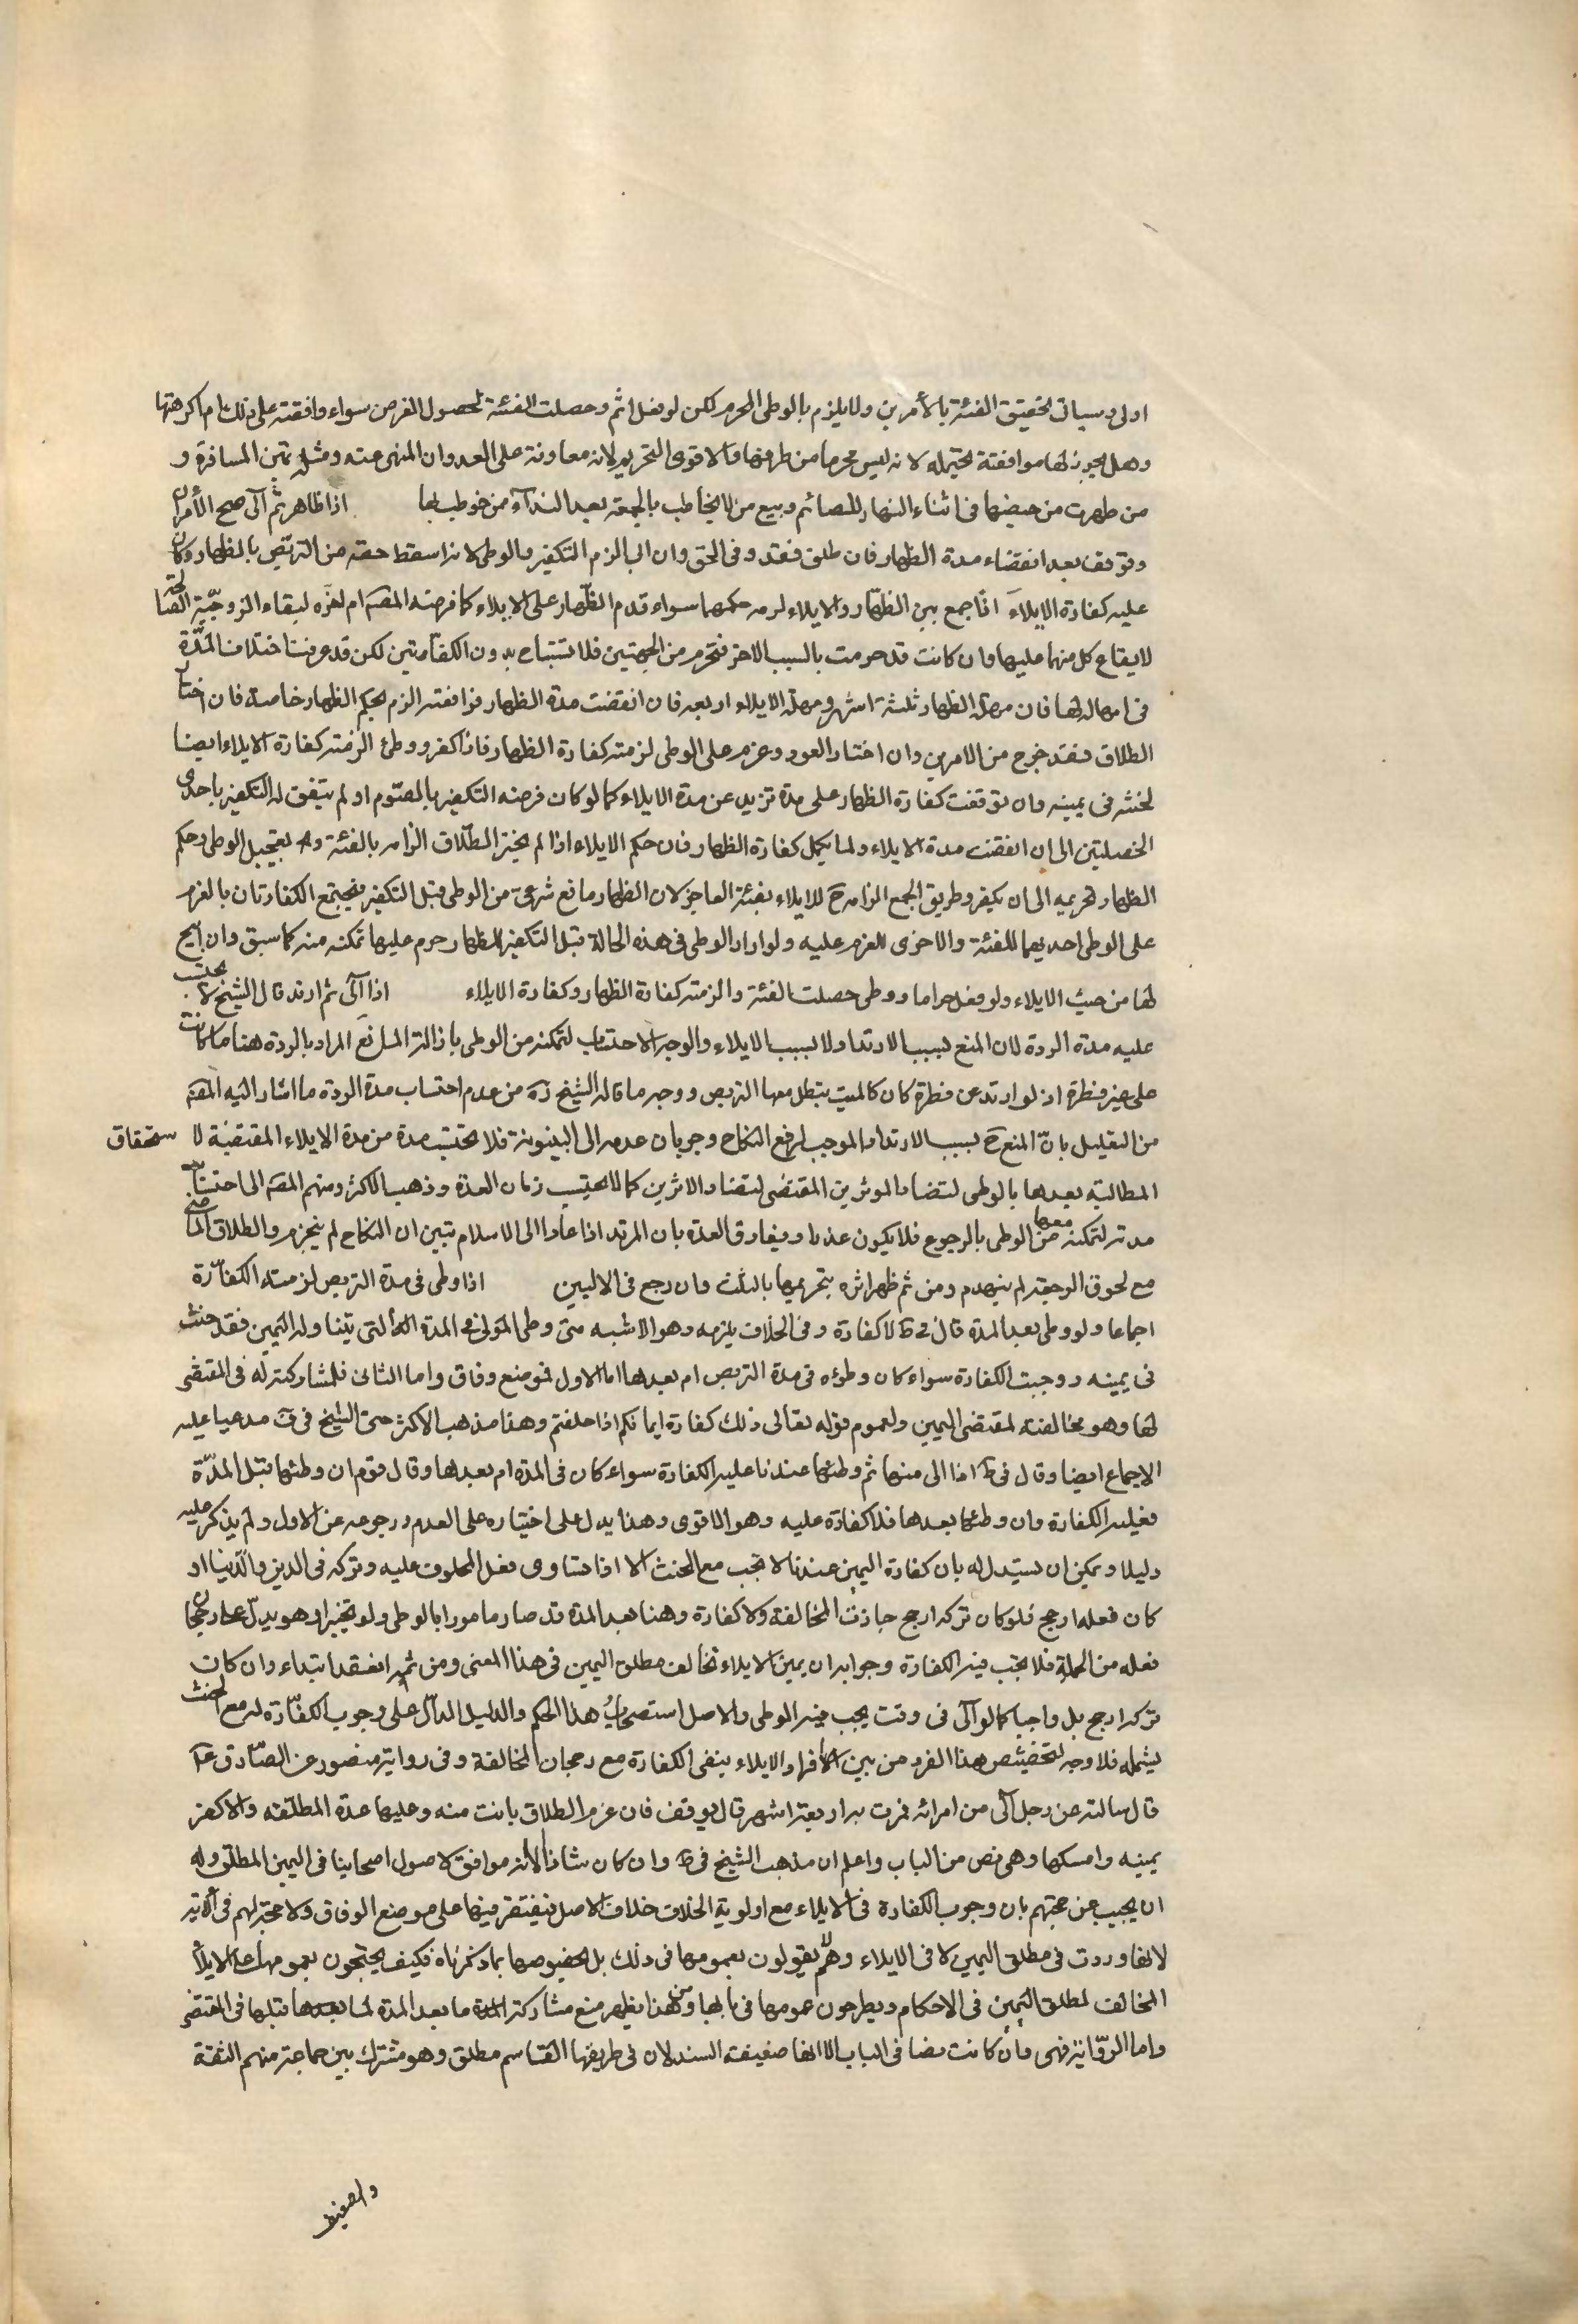 اولى وسياتى تحقيق الفئة بالأمرين ولا يلزم بالوطى المحرم لكن لو فعل اثم وحصلت الفئة لحصول الغرض سواء وافقته على ذلك ام اكرهها
وهل يجوز لها موافقة يحتمله لانه ليس محرما من طرفها والاقوى التحريم لانه معاونة على العدوان المنهى عنه ومثله تمكين المسافرة و
من طهرت من حيضها فى اثناء النهار للصائم وبيع من لا يخاطب بالجمعة بعد النداء من خوطب بها اذا ظاهر ثم آلى صح الأمران
وتوقف بعد انقضاء مدة الظهار فان طلق فقد وفى الحق وان ابى الزم التكفير والوطى لانه اسقط حقه من التربص بالظهار وكان
عليه كفارة الايلاء اذا جمع بين الظهار والايلاء لزمه حكمهما سواء قدم الظهار على الايلاء كما فرضه المصه ام اخره لبقاء الزوجية الصالحة
لايقاع كل منهما عليها وان كانت قد حرمت بالسبب الاخر فتحرم من الجهتين فلا تستباح بدون الكفارتين لكن قد عرفت اختلاف المدة
فى امهاله لها فان مهلة الظهار ثلثة اشهر ومهلة الايلاء اربعه فان انقضت مدة الظهار فرافعته الزم بحكم الظهار خاصة فان اختار
الطلاق فقد خرج من الامرين وان اختار العود وعزم على الوطى لزمته كفارة الظهار فاذا كفر ووطى لزمته كفارة الايلاء ايضا
لحنثه فى يمينه وان توقفت كفارة الظهار على مدة تزيد عن مدة الايلاء كما لو كان فرضه التكفير بالصوم او لم يتفق له التكفير باحدى
الخصلتين الى ان انقضت مدة الايلاء ولما يكمل كفارة الظهار فان حكم الايلاء اذا لم يختر الطلاق الزامه بالفئة وهو بتعجيل الوطى وحكم
الظهار تحريمه الى ان يكفر وطريق الجمع الزامه ح للايلاء بفئة العاجز لان الظهار مانع شرعى من الوطى قبل التكفير فيجتمع الكفارتان بالعزم
على الوطى احديهما للفئة والاخرى للعزم عليه ولو اراد الوطى فى هذه الحالة قبل التكفير للظهار حرم عليها تمكينه منه كما سبق وان ابيح
لها من حيث الايلاء ولو فعل حراما ووطى حصلت الفئة والزمته كفارة الظهار وكفارة الايلاء اذا آلى ثم ارتد قال الشيخ لا يحتسب
عليه مدة الردة لان المنع بسبب الارتداد لا بسبب الايلاء والوجه الاحتساب لتمكنه من الوطى بازالة المانع المراد بالردة هنا ما كانت
على غير فطرة اذ لو ارتد عن فطرة كان كالميت يبطل معها التربص ووجه ما قاله الشيخ ره من عدم احتساب مدة الردة ما اشار اليه المصه
من التعليل بانّ المنع ح بسبب الارتداد الموجب لرفع النكاح وجريان عدمه الى البينونة فلا تحتسب مدة من مدة الايلاء المقتضية لا ستحقاق
المطالبة بعدها بالوطى لتضاد الموثرين المقتضى لتضاد الاثرين كما لا يحتسب زمان العدة وذهب الاكثر ومنهم المصه الى احتساب
مدته لتمكنه معها من الوطى بالرجوع فلا يكون عذرا ويفارق العدة بان المرتد اذا عاد الى الاسلام تبين ان النكاح لم ينخرم والطلاق الماضى
مع لحوق الرجعة لم ينهدم ومن ثم ظهر اثره بتحريمها بالثلث وان رجع فى الاليين اذا وطى فى مدة التربص لزمته الكفّارة
اجماعا ولو وطى بعد المدة قال فى ط لا كفارة وفى الخلاف يلزمه وهو الاشبه متى وطى المولى فى المدة التى يتناوله اليمين فقد حنث
فى يمينه ووجبت الكفارة سواء كان وطؤه فى مدة التربص ام بعدها اما الاول فموضع وفاق واما الثانى فلمشاركته له فى المقتضى
لها وهو مخالفته لمقتضى اليمين ولعموم قوله تعالى ذلك كفارة ايمانكم اذا حلفتم وهذا مذهب الاكثر حتى الشيخ فى ف مدعيا عليه
الاجماع ايضا وقال فى ط اذا الى منها ثم وطئها عندنا عليه الكفارة سواء كان فى المدة ام بعدها وقال قوم ان وطئها قبل المدّة
فعليه الكفارة وان وطئها بعدها فلا كفارة عليه وهو الاقوى وهذا يدل على اختياره على العدم ورجوعه عن الاول ولم يذكر عليه
دليلا ويمكن ان يستدل له بان كفارة اليمين عندنا لا تجب مع الحنث الا اذا تساوى فعل المحلوف عليه وتركه فى الدين والدنيا او
كان فعله ارجح فلو كان تركه ارجح جازت المخالفة ولا كفارة وهنا بعد المدة قد صار مامورا بالوطى ولو تخييرا وهو يدل على رجحان
فعله من الجملة فلا تجب فيه الكفارة وجوابه ان يمين الايلاء تخالف مطلق اليمين فى هذا المعنى ومن ثم انعقد ابتداء وان كان
تركه ارجح بل واجبا كما لو آلى فى وقت يجب فيه الوطى والاصل استصحاب هذا الحكم والدليل الدالّ على وجوب الكفّارة له مع الحنث
يشمله فلا وجه لتخصيص هذا الفرد من بين افراد الايلاء بنفى الكفارة مع رجحان المخالفة وفى رواية منصور عن الصادق ع
قال سالته عن رجل آلى من امراته فمرت به اربعة اشهر قال يوقف فان عزم الطلاق بانت منه وعليها عدة المطلقه والا كفر
يمينه وامسكها وهى نص من الباب واعلم ان مذهب الشيخ فى ط وان كان شاذا الا انه موافق لاصول اصحابنا فى اليمين المطلق وله
ان يجيب عن حجتهم بان وجوب الكفارة فى الايلاء مع اولوية الخلاف خلاف الاصل فيقتصر فيها على موضع الوفاق ولا حجة لهم فى الاية
لانها وردت فى مطلق اليمين لا فى الايلاء وهم لا يقولون بعمومها فى ذلك بل بخصوصها بما ذكرناه فكيف يحتجون بعمومها على الايلاء
المخالف لمطلق اليمين فى الاحكام ويطرحون عمومها فى بابها ومن هذا يظهر منع مشاركة ما بعد المدة لما قبلها فى المقتضى
واما الروّاية فهى وان كانت نصا فى الباب الا انها ضعيفة السند لان فى طريقها القاسم مطلق وهو مشترك بين جماعة منهم الثقة
والضعيف